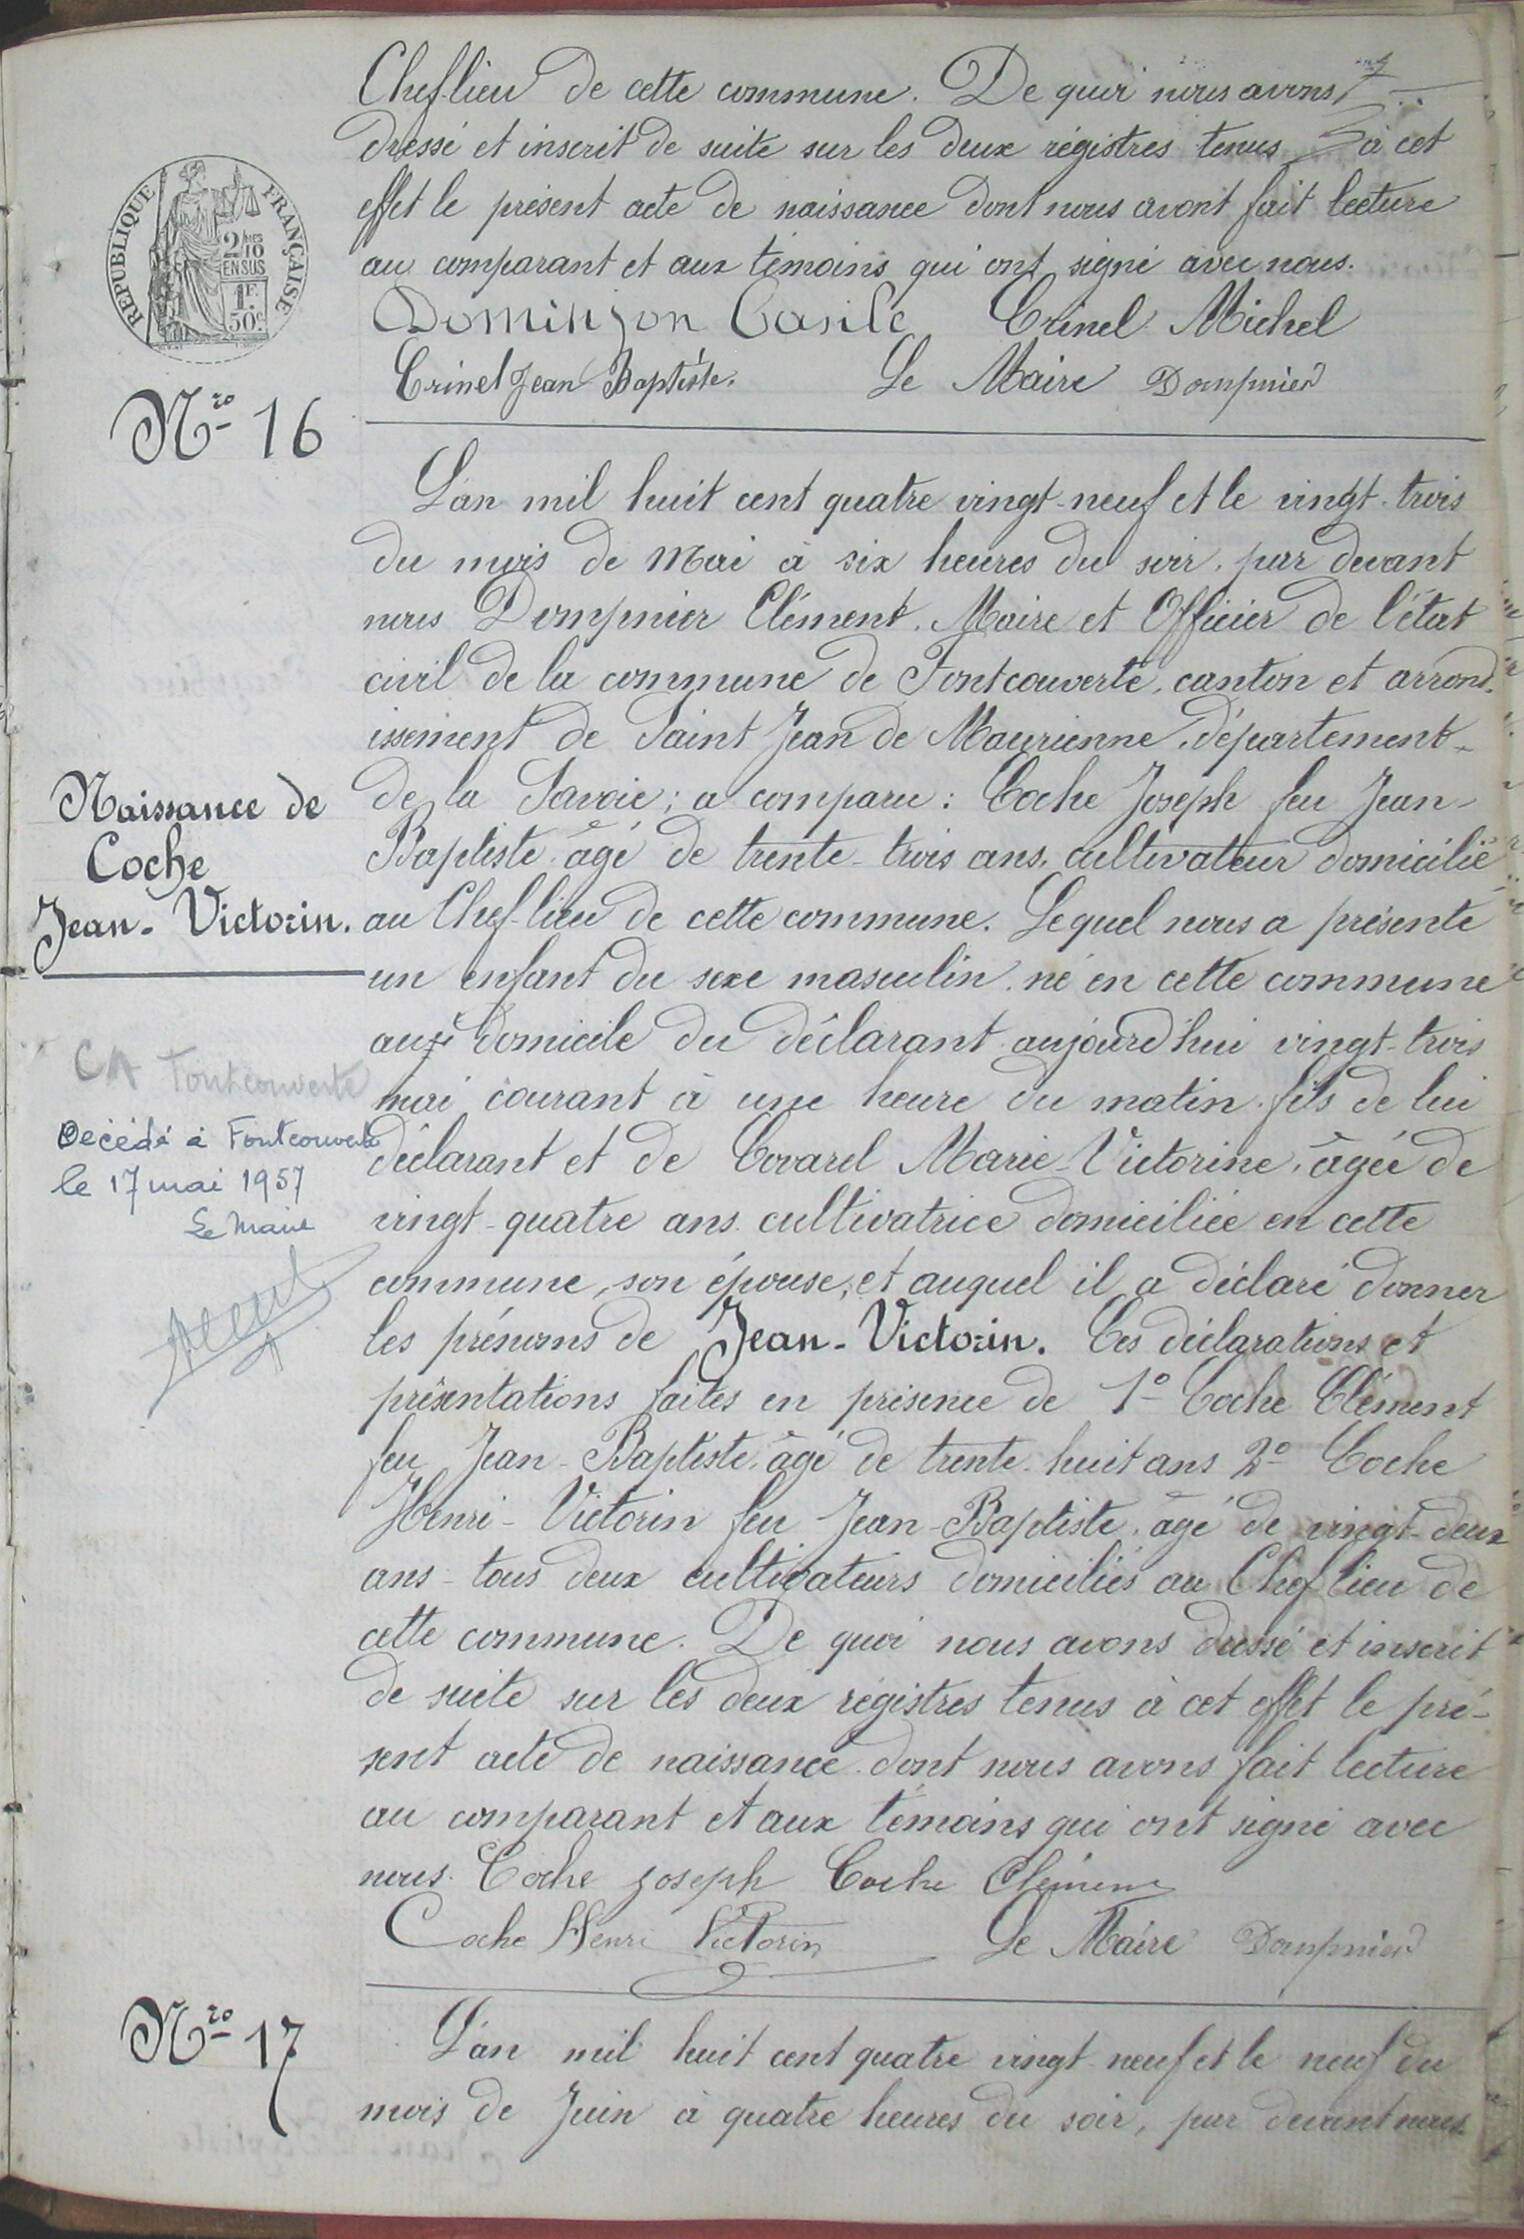 Chef-lieu de cette commune. De quoi nous avons
dressé et inscrit de suite sur les deux régistres tenus à cet
effet le présent acte de naissance dont nous avont fait lecture
au comparant et aux témoins qui ont signé avec nous.
Dominjon Casile Crinel Michel
Crinel Jean Baptiste. Le Maire Dompnier
RÉPUBLIQUE FRANÇAISE
2/10 EN SUS
1F. 50c.
Nro 16
L'an mil huit cent quatre vingt-neuf et le vingt-trois
du mois de Mai à six heures du soir, par devant
nous Dompnier Clément, Maire et Officier de l'état
civil de la commune de Fontcouverte, canton et arrond-
issement de Saint Jean de Maurienne, département
de la Savoie; a comparu : Coche Joseph feu Jean-
Baptiste, âgé de trente-trois ans, cultivateur domicilié
au Chef-lieu de cette commune. Lequel nous a présenté
un enfant du sexe masculin, né en cette commune
au domicile du déclarant aujourd'hui vingt-trois
mai courant à une heure du matin, fils de lui
déclarant et de Covarel Marie-Victorine, âgée de
vingt-quatre ans cultivatrice domiciliée en cette
commune, son épouse, et auquel il a déclaré donner
les prénoms de Jean-Victorin. Ces déclarations et
présentations faites en présence de 1o Coche Clément
feu Jean-Baptiste, âgé de trente-huit ans 2o Coche
Henri-Victorin feu Jean-Baptiste, âgé de vingt-deux
ans tous deux cultivateurs domiciliés au Chef lieu de
cette commune. De quoi nous avons dressé et inscrit
de suite sur les deux régistres tenus à cet effet le pré-
sent acte de naissance dont nous avons fait lecture
au comparant et aux témoins qui ont signé avec
nous. Coche Joseph Coche Clément
Coche Henri Victorin Le Maire Dompnier
Naissance de
Coche
Jean-Victorin.
CA Fontcouverte
Décédé à Fontcouverte
le 17 mai 1957
Le Maire
Nro 17
L'an mil huit cent quatre vingt-neuf et le neuf du
mois de Juin à quatre heures du soir, par devant nous